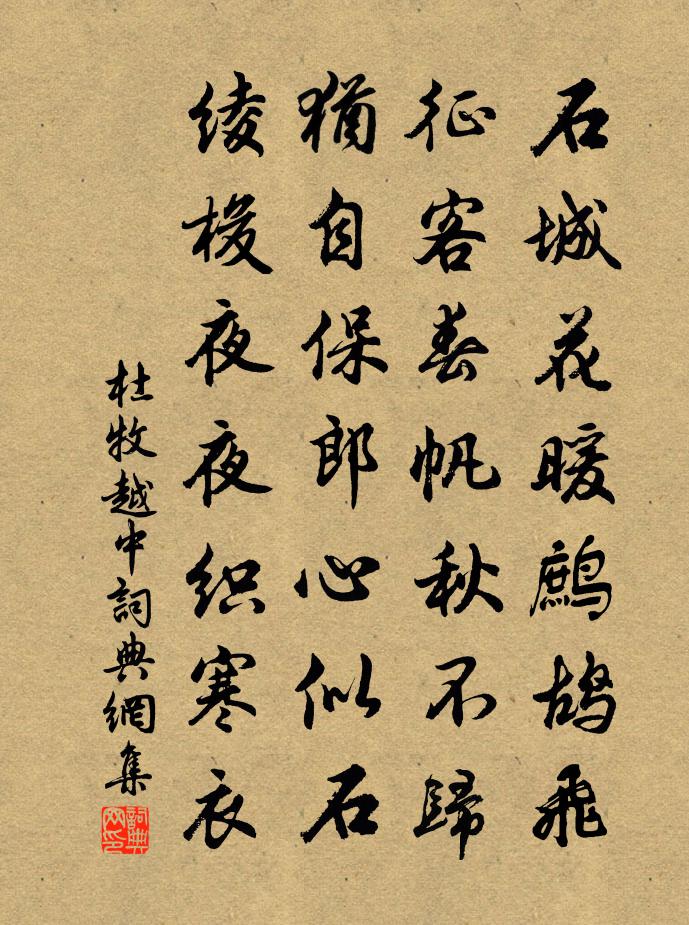 石城花暖鷓鴣飛
征客春帆秋不歸
猶自保郎心似石
绫梭夜夜织寒衣
杜牧越中詞典網集
詞典网印